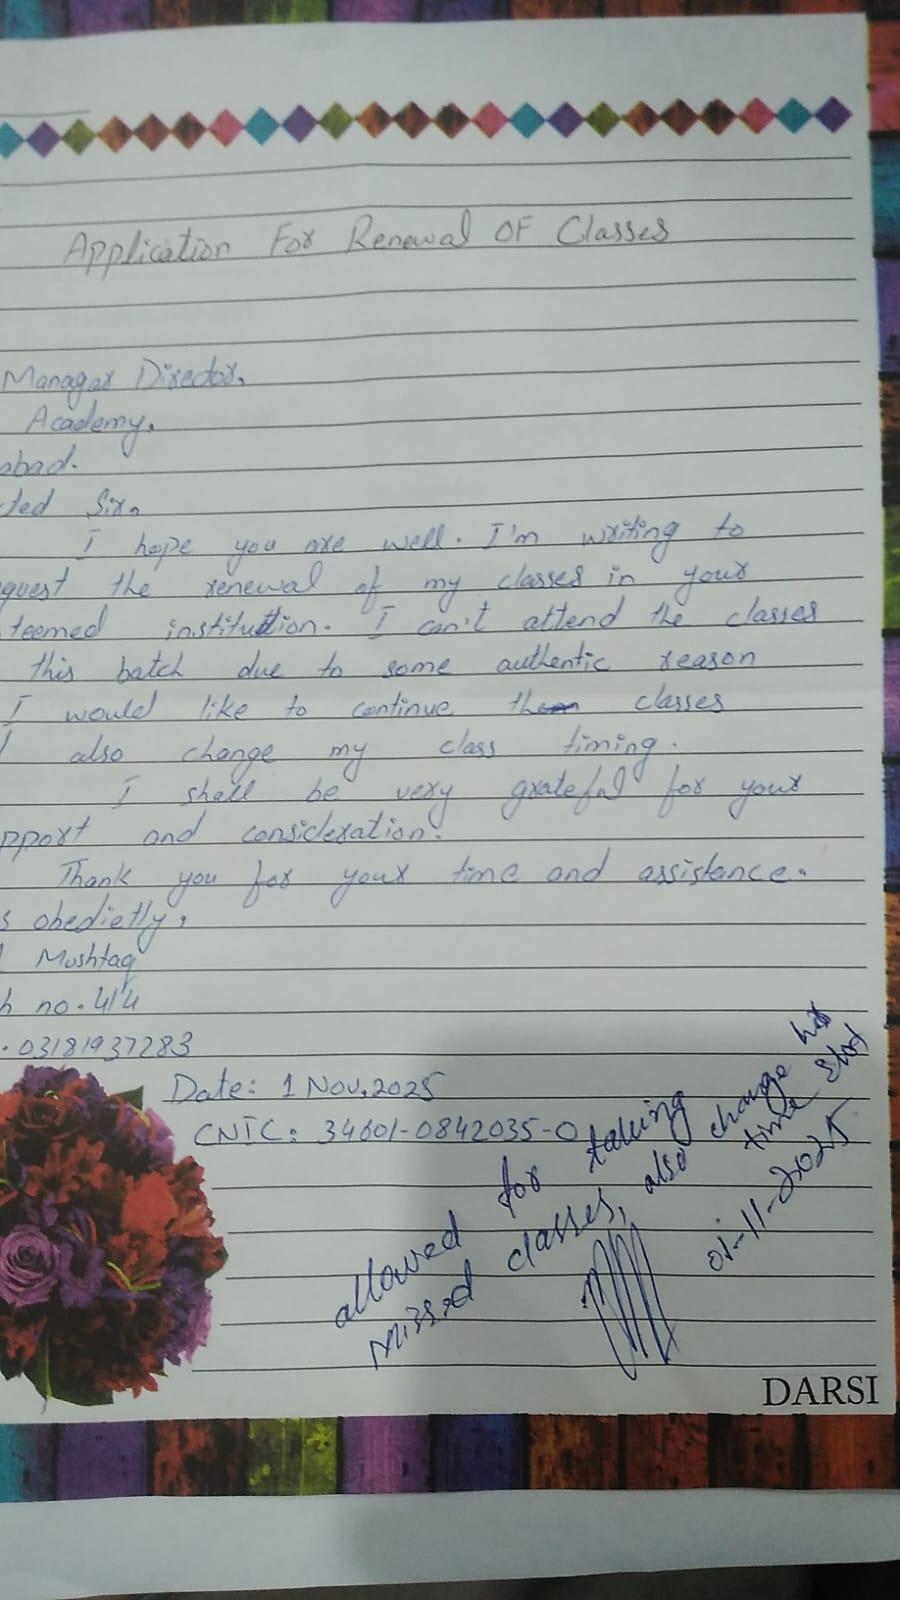 Application For Renewal OF Classes
Manager Director,
Academy.
abad.
ted Sir,
I hope you are well. I'm writing to
quest the renewal of my classes in your
teemed institution. I can't attend the classes
this batch due to some authentic reason
I would like to continue the classes
also change my class timing.
I shall be very grateful for your
pport and consideration.
Thank you for your time and assistance.
s obedietly,
Mushtaq
h no. 414
. 03181937283
Date: 1 Nov, 2025
CNIC: 34601-0842035-0
allowed for taking
missed classes, also change her
time slot
01-11-2025
DARSI